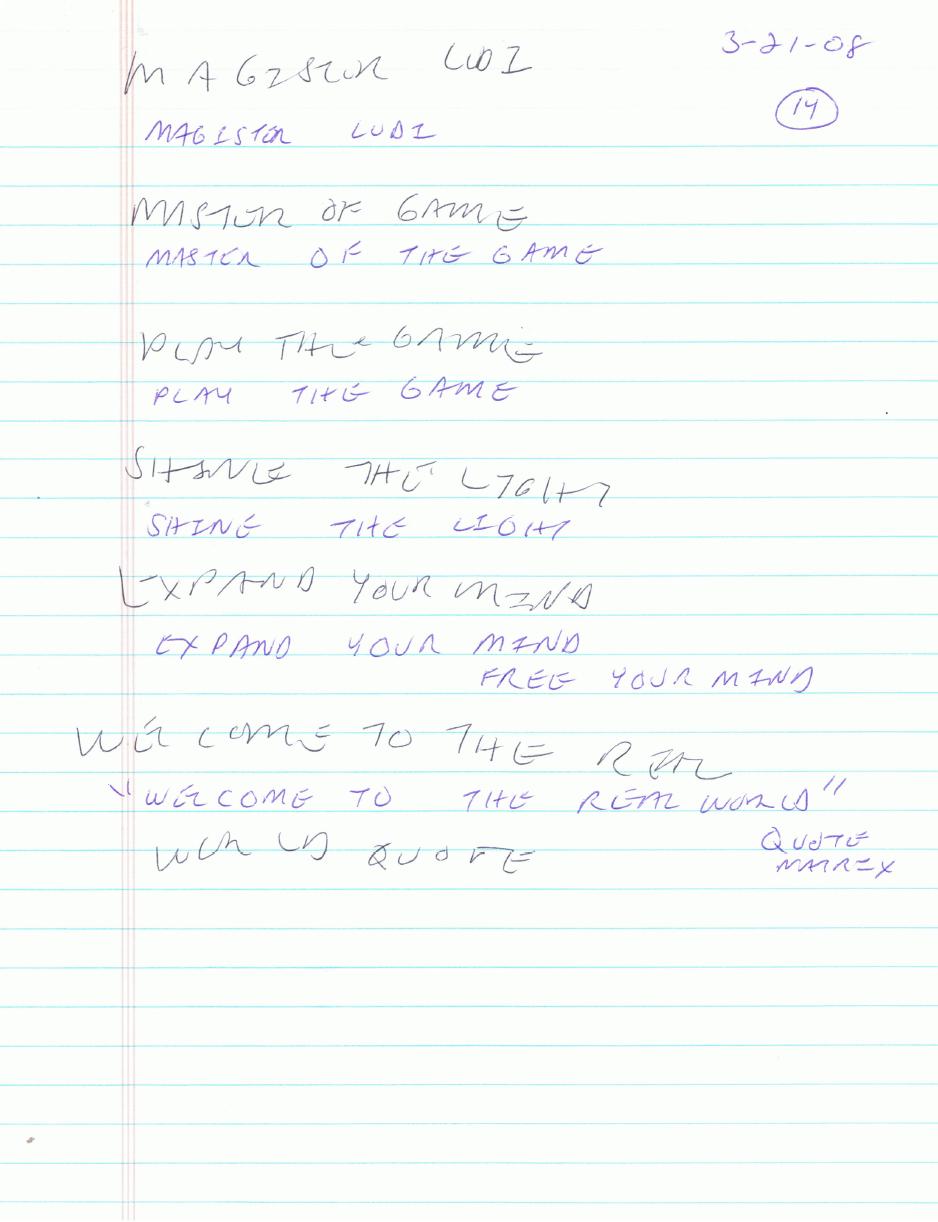 3-21-08
14
MAGISTUR LUDI
MAGISTER LUDI
MASTUR OF GAME
MASTER OF THE GAME
PLAY THE GAME
PLAY THE GAME
SHINE THE LIGHT
SHINE THE LIGHT
EXPAND YOUR MIND
EXPAND YOUR MIND
FREE YOUR MIND
WELCOME TO THE REAL
"WELCOME TO THE REAL WORLD"
WORLD QUOTE
QUOTE
MATREX